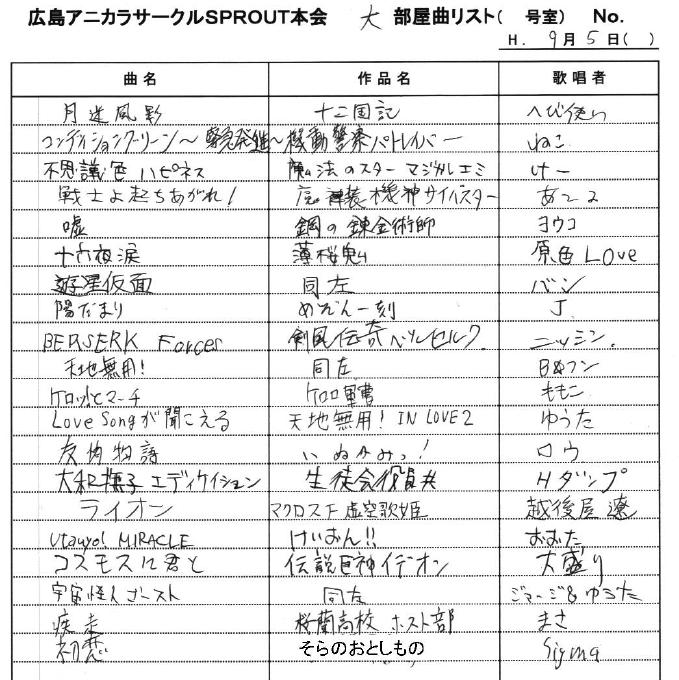 広島アニカラサークルSPROUT本会 大 部屋曲リスト( 号室) No.
H. 9月5日( )
曲名 作品名 歌唱者
月迷風影 十二国記 へび使い
コンディショングリーン〜緊急発進〜 機動警察パトレイバー ねこ
不思議色ハピネス 魔法のスターマジカルエミ けー
戦士よ起ちあがれ! 魔装機神サイバスター
嘘 鋼の錬金術師 ヨウコ
十六夜涙 薄桜鬼 原色Love
遊星仮面 同左 バン
陽だまり めぞん一刻 J
BERSERK Forces 剣風伝奇ベルセルク ニッシン.
天地無用! 同左
ケロッとマーチ ケロロ軍曹 ももこ
Love Songが聞こえる 天地無用! IN LOVE2 ゆうた
友情物語 いぬかみっ! ロウ
大和撫子エディケイション 生徒会役員共 Hダップ
ライオン マクロスF 虚空歌姫 越後屋遼
Utauyo! MIRACLE けいおん!! おおた
コスモスに君と 伝説巨神イデオン 大盛り
宇宙怪人ゴースト 同左 ジマージ&ゆうた
疾走 桜蘭高校ホスト部 まさ
初恋 そらのおとしもの Sigma